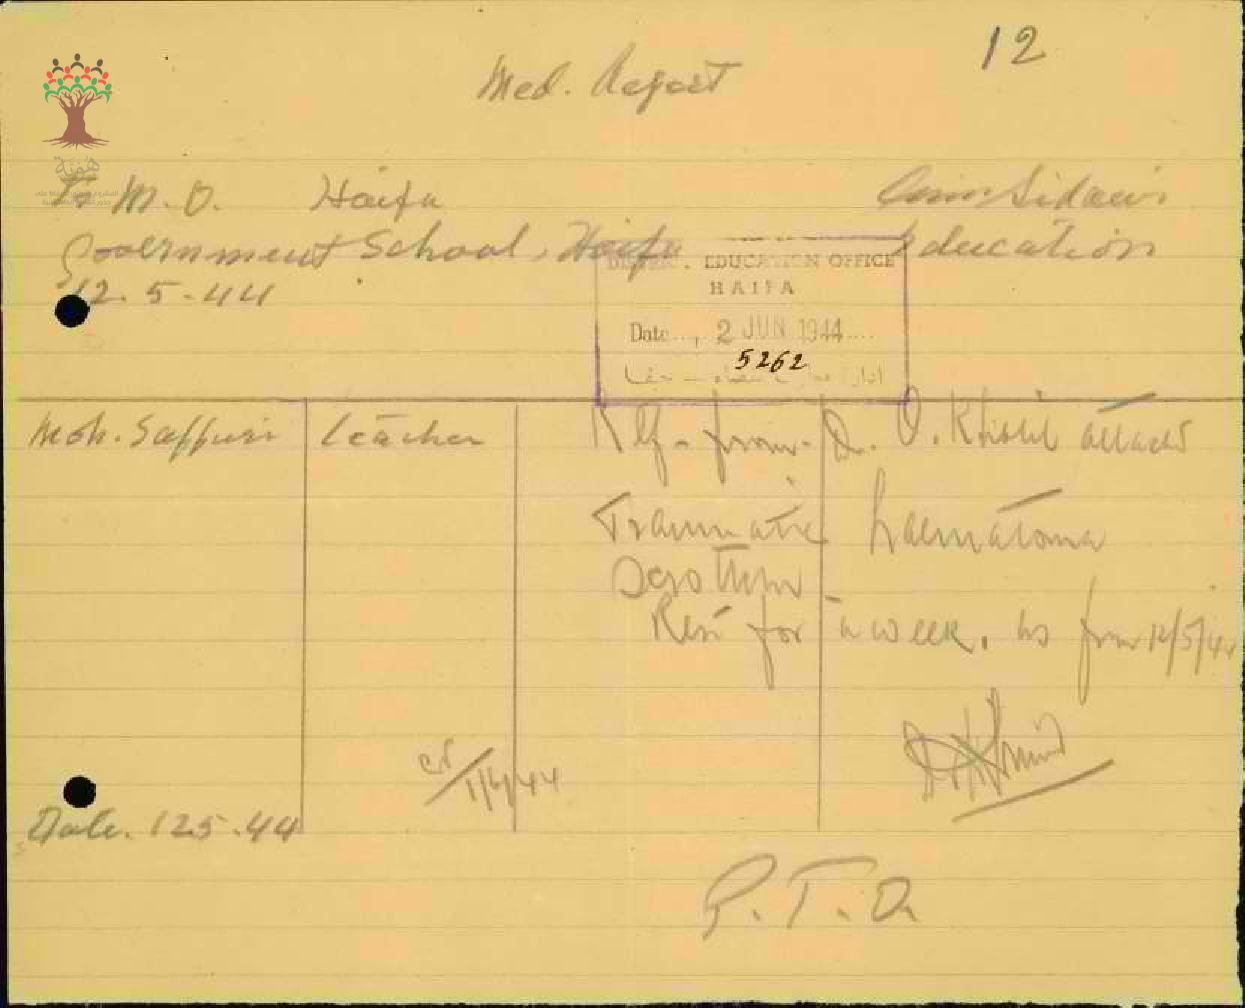 12
Med. Report
همّة
To M.O. Haifa
Government School, Haifa Education
12.5.44
DISTRICT EDUCATION OFFICE
HAIFA
Date..., 2 JUN 1944....
5262
Moh. Saffuri teacher Ref. from Dr. O. Khalil attached
Traumatic haematoma
Scrotum
Rest for a week. as from 12/5/44
1/6/44
Date. 12.5.44
P.T.O.